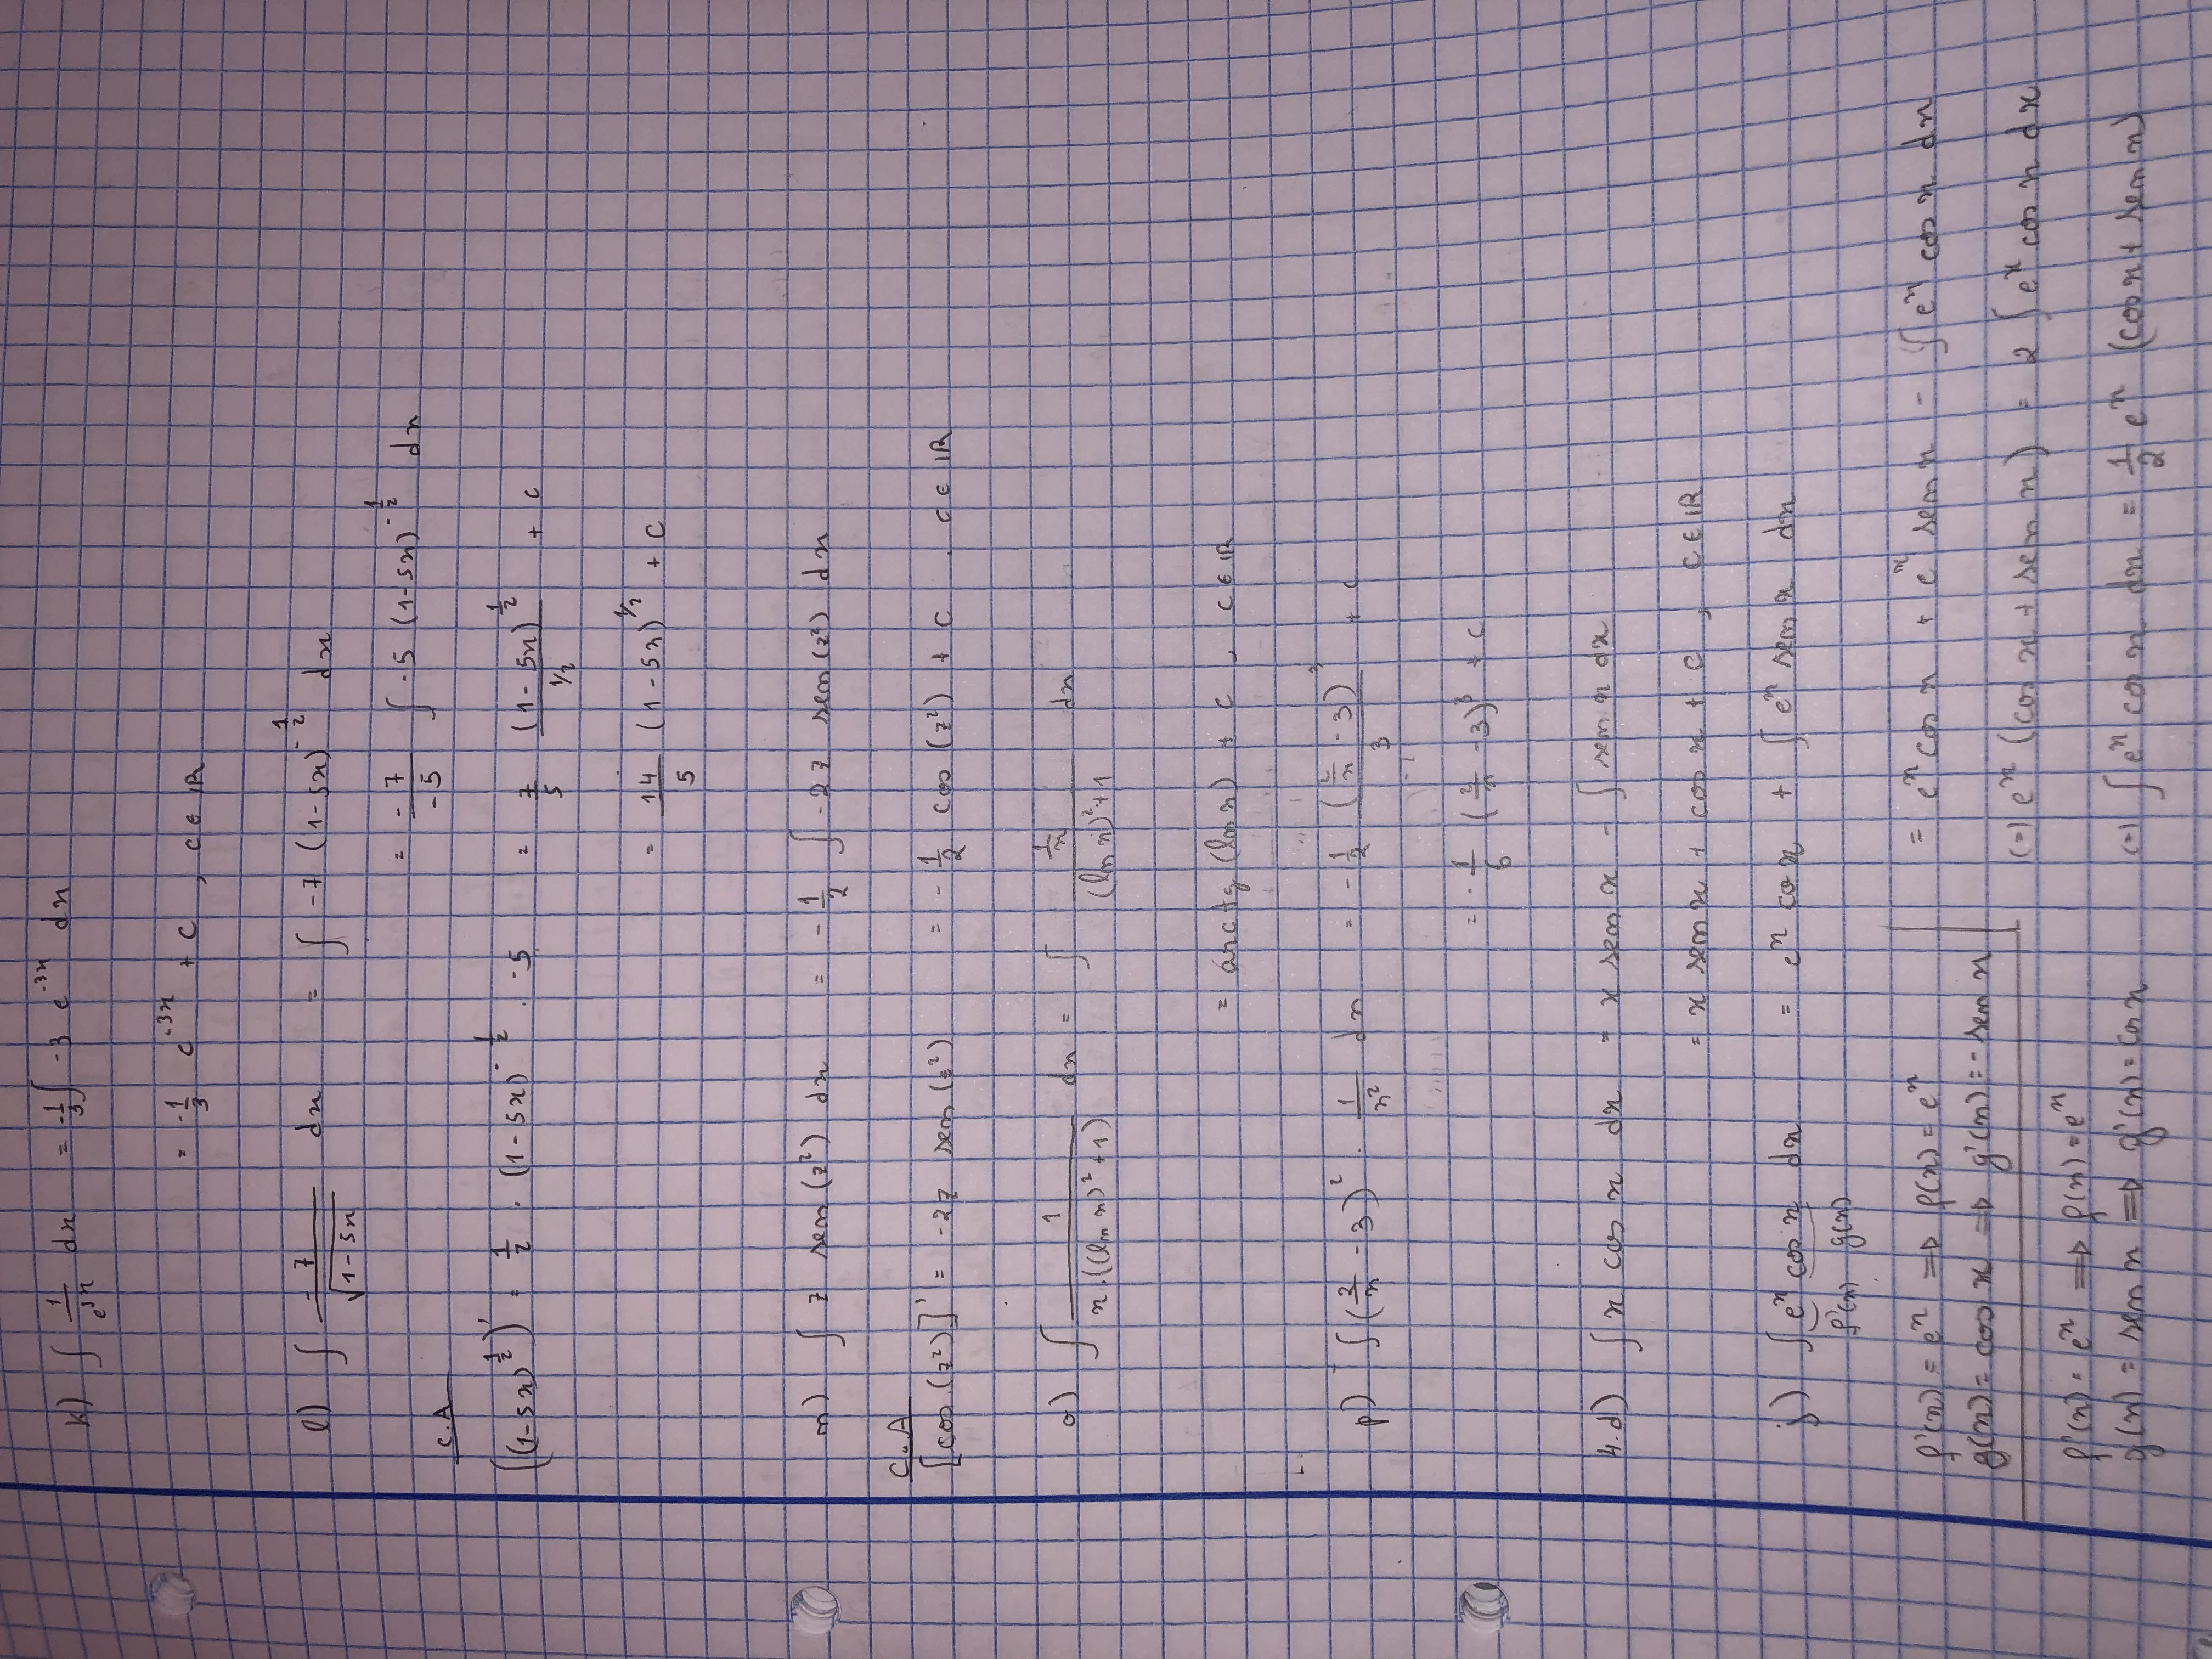 k) ∫ 1/e^{3x} dx = -1/3 ∫ -3 e^{-3x} dx
= -1/3 e^{-3x} + C , C ∈ IR
l) ∫ -7/√(1-5x) dx = ∫ -7 (1-5x)^{-1/2} dx
= -7/-5 ∫ -5 (1-5x)^{-1/2} dx
C.A
((1-5x)^{1/2})' = 1/2 . (1-5x)^{-1/2} . -5 = 7/5 (1-5x)^{1/2}/(1/2) + C
= 14/5 (1-5x)^{1/2} + C
n) ∫ z sen(z²) dx = -1/2 ∫ -2z sen(z²) dx
C.A
[cos(z²)]' = -2z sen(z²) = -1/2 cos(z²) + C , C ∈ IR
o) ∫ 1/(x.((ln x)²+1)) dx = ∫ (1/x)/((ln x)²+1) dx
= arctg (ln x) + C , C ∈ IR
p) ∫ (2/x - 3)² . 1/x² dx = -1/2 (2/x - 3)³/3 + C
= -1/6 (2/x - 3)³ + C
4.d) ∫ x cos x dx = x sen x - ∫ sen x dx
= x sen x + cos x + C , C ∈ IR
j) ∫ e^x cos x dx = e^x co x + ∫ e^x sen x dx
f'(x) g(x)
f'(x) = e^x => f(x) = e^x = e^x cos x + e^x sen x - ∫ e^x cos x dx
g(x) = cos x => g'(x) = - sen x
(=) e^x (cos x + sen x) = 2 ∫ e^x cos x dx
f'(x) = e^x => f(x) = e^x
g(x) = sen x => g'(x) = cos x (=) ∫ e^x cos x dx = 1/2 e^x (cos x + sen x)